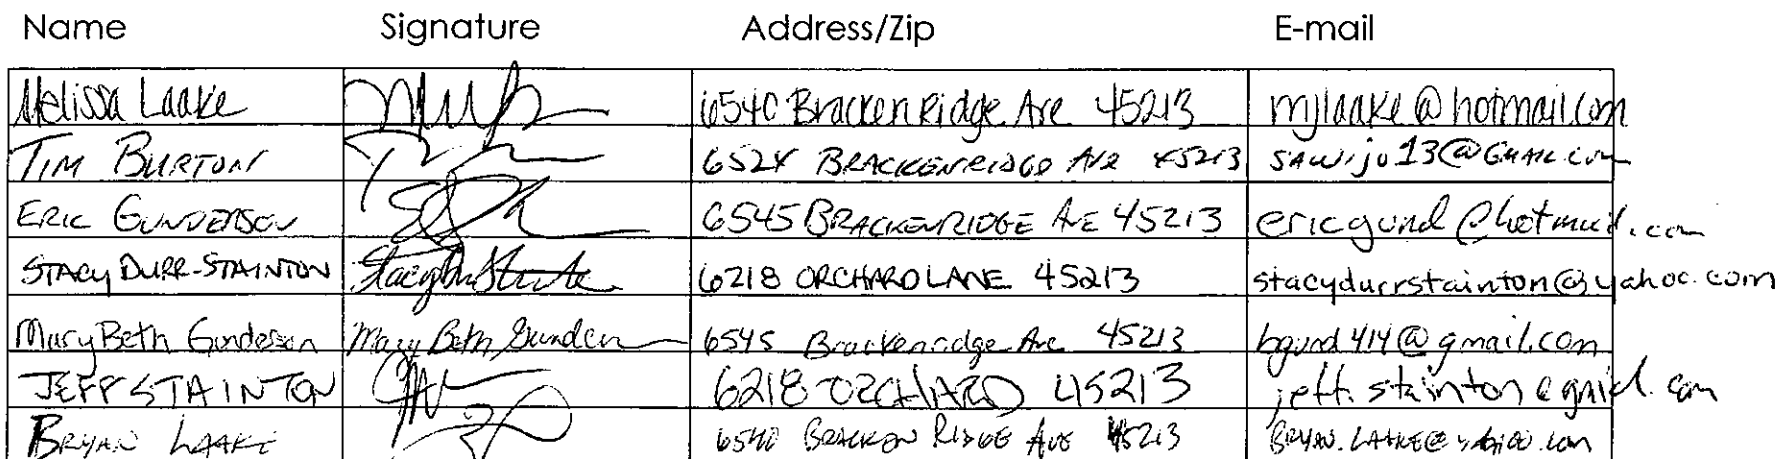 Name Signature Address/Zip E-mail
Melissa Laake 6540 Bracken Ridge Ave 45213 mjlaake@hotmail.com
TIM BURTON 6524 BRACKENRIDGE AVE 45213 sawijo13@GMAIL.com
ERIC GUNDERSON 6545 BRACKENRIDGE AVE 45213 ericgund@hotmail.com
STACY DURR-STAINTON 6218 ORCHARD LANE 45213 stacydurrstainton@yahoo.com
Mary Beth Gunderson Mary Beth Gunderson 6545 Brackenridge Ave 45213 bgund414@gmail.com
JEFF STAINTON 6218 ORCHARD 45213 jeff.stainton@gmail.com
BRYAN LAAKE 6540 BRACKEN RIDGE AVE 45213 BRYAN.LAAKE@YAHOO.com